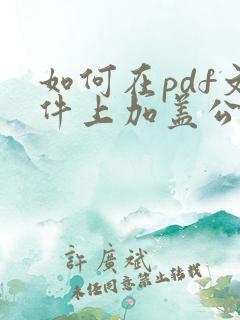 如何在pdf文
件上加盖公
許廣斌
未经同意禁止转载